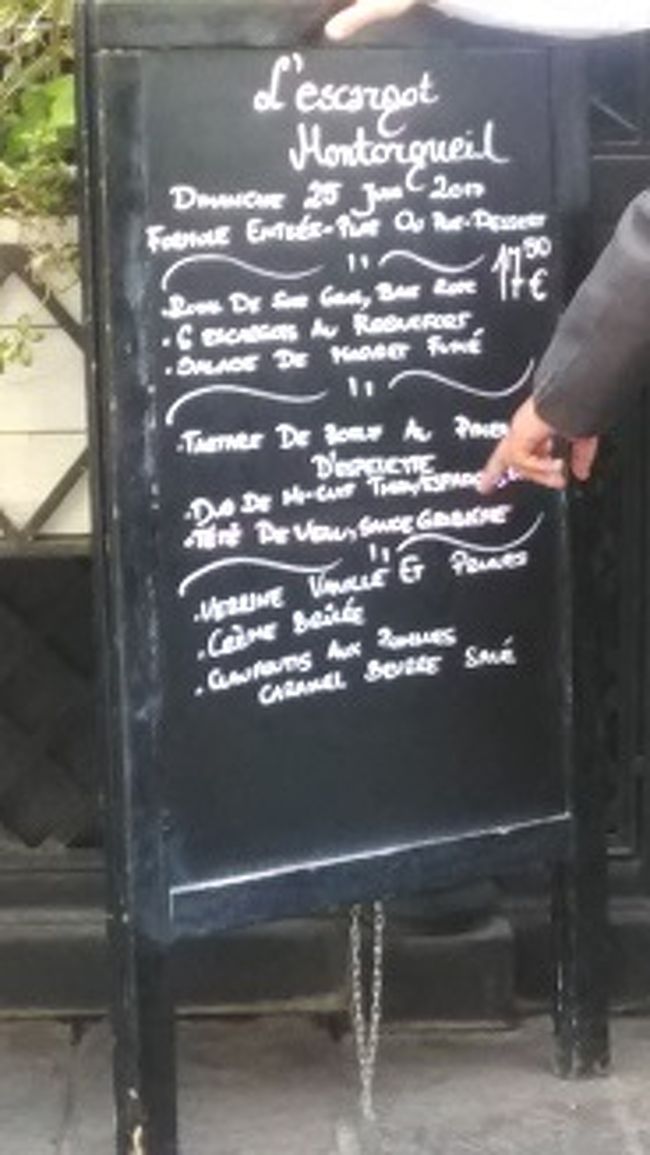 L'escargot
Montorgueil
Dimanche 25 Juin 2017
Formule Entrée-Plat Ou Plat-Dessert
17 50 €
. De Foie Gras,
. 6 escargots Au Roquefort
. Salade De Magret Fumé
. Tartare De Boeuf Au
D'espelette
. Duo De Mi-cuit Thon/Espadon
. Tête De Veau, Sauce Gribiche
. Verrine Vanille Et Prunes
. Crème Brûlée
. Clafoutis Aux Pommes
Caramel Beurre Salé